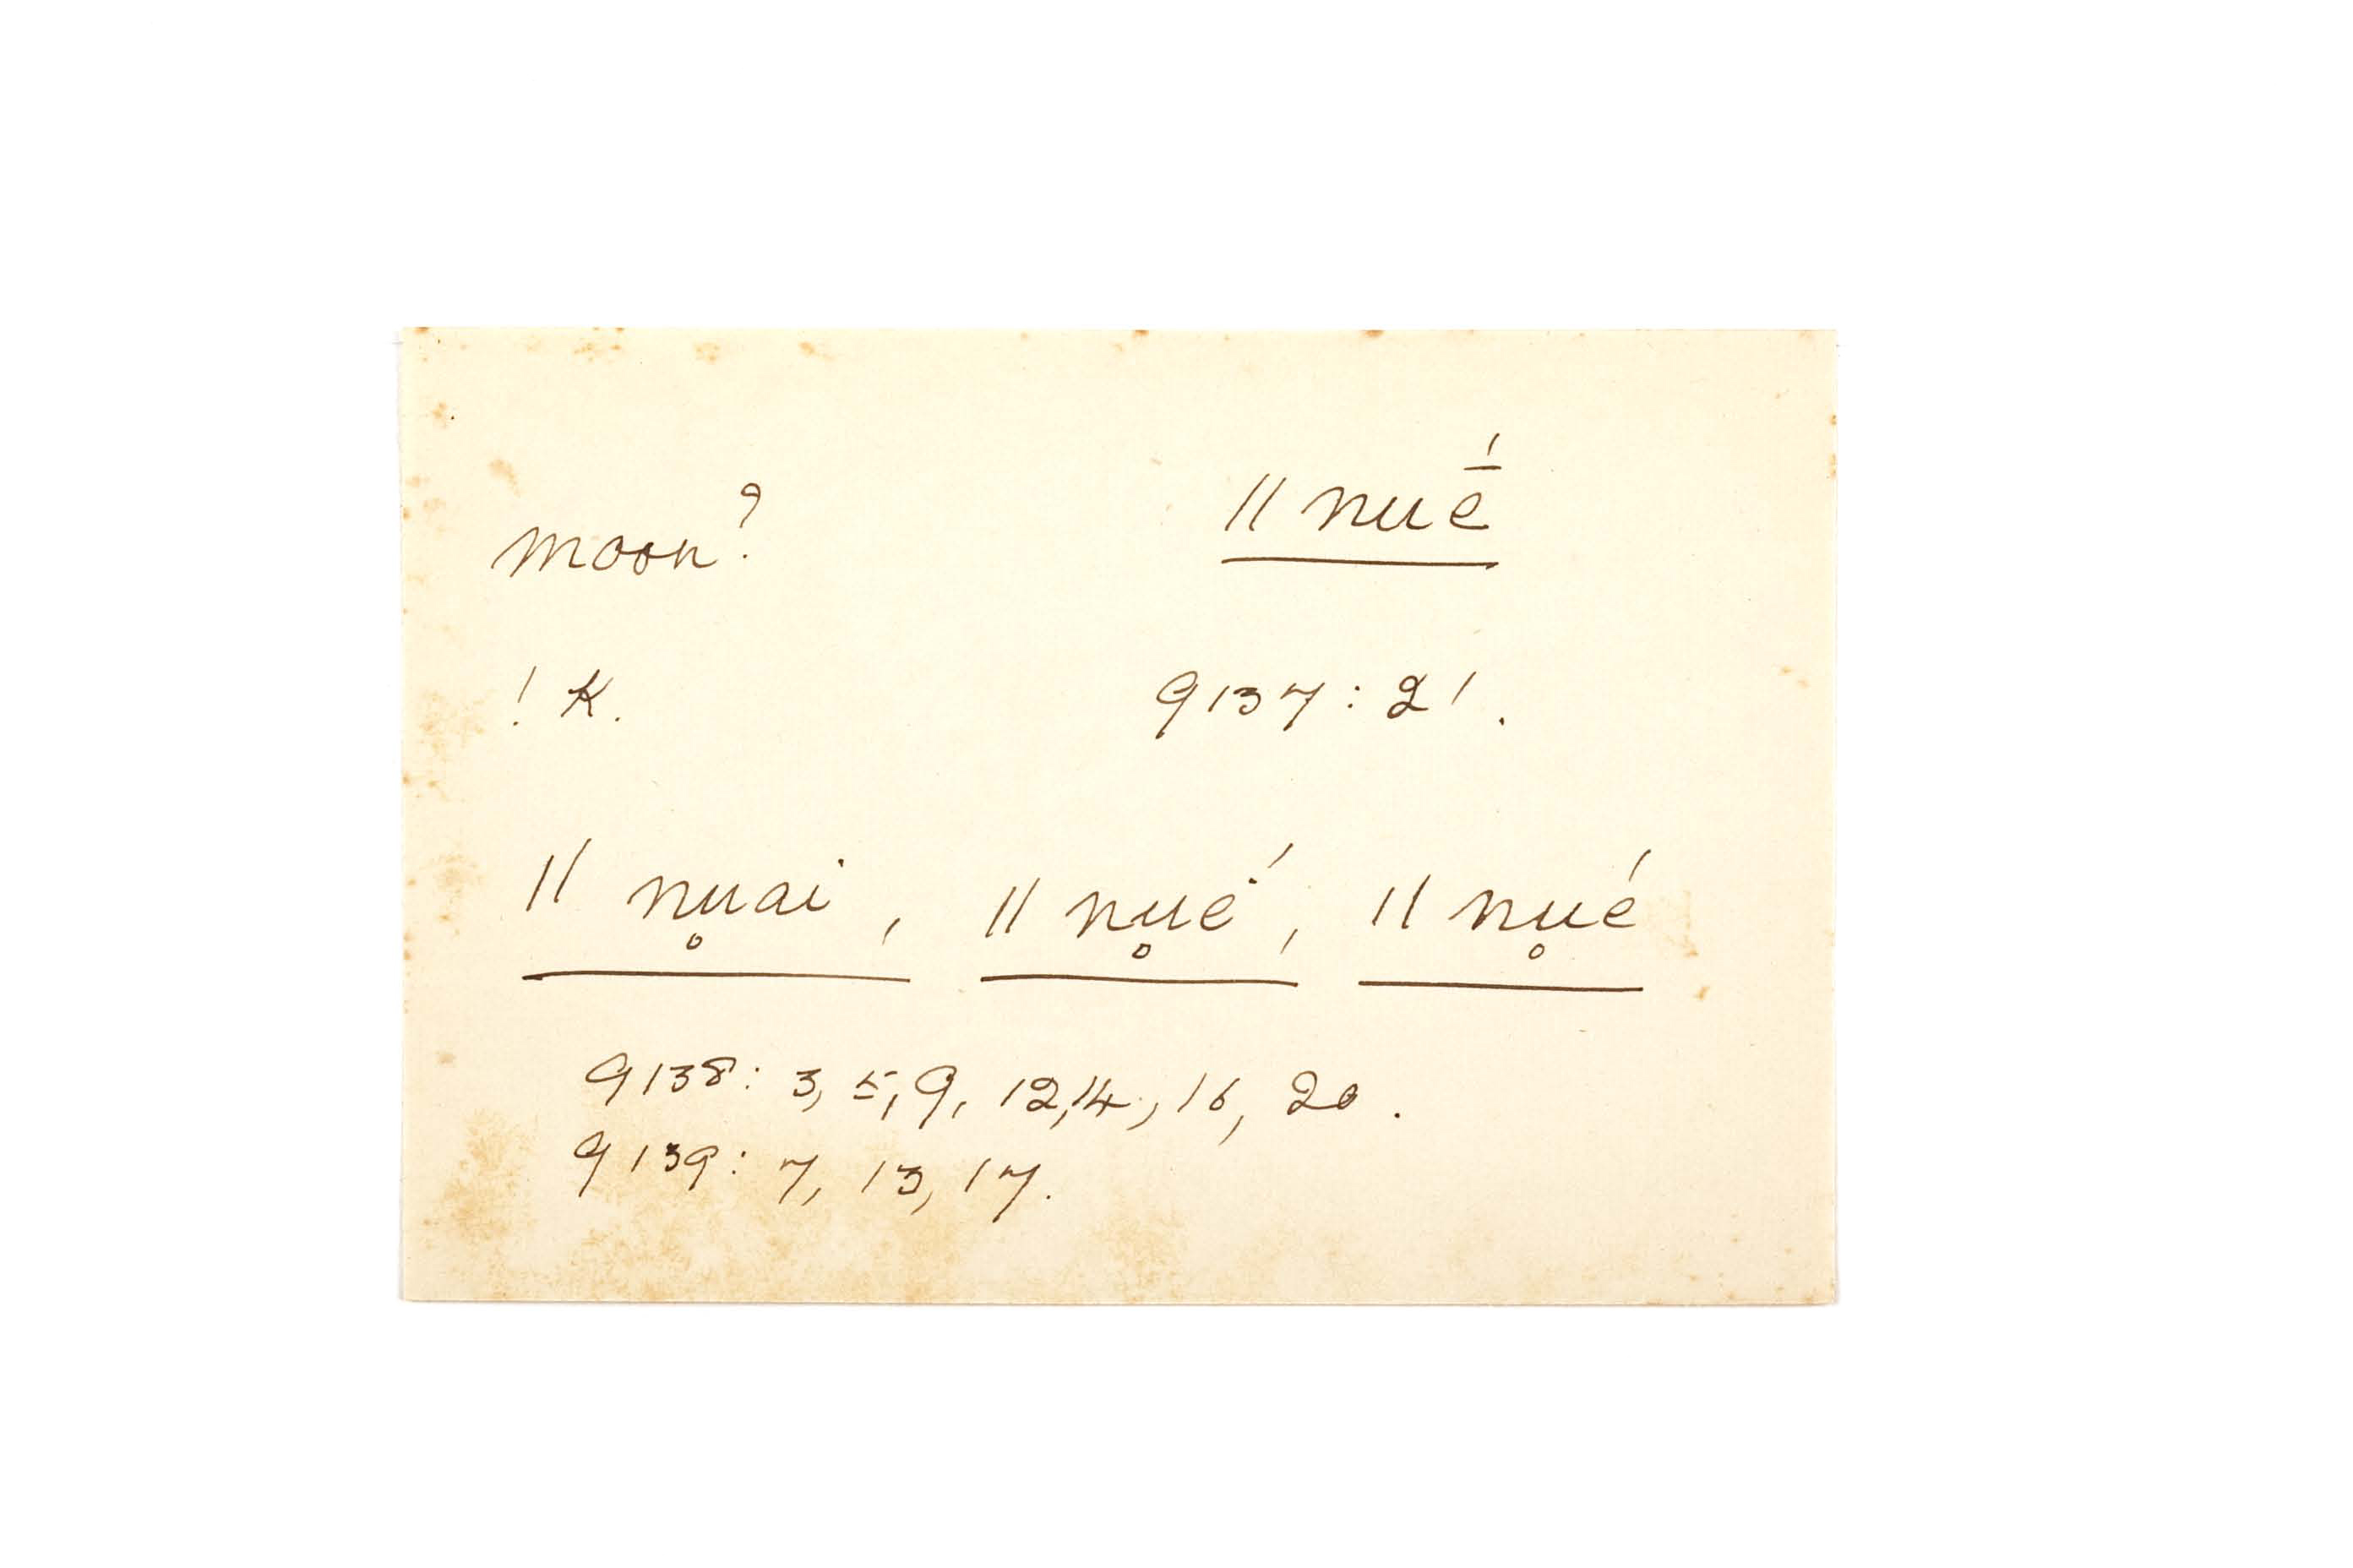 moon? ǁnuḗ
!K. 9137:21.
ǁnu̥ai, ǁnu̥é, ǁnu̥é
9138: 3, 5, 9, 12, 14, 16, 20.
9139: 7, 13, 17.